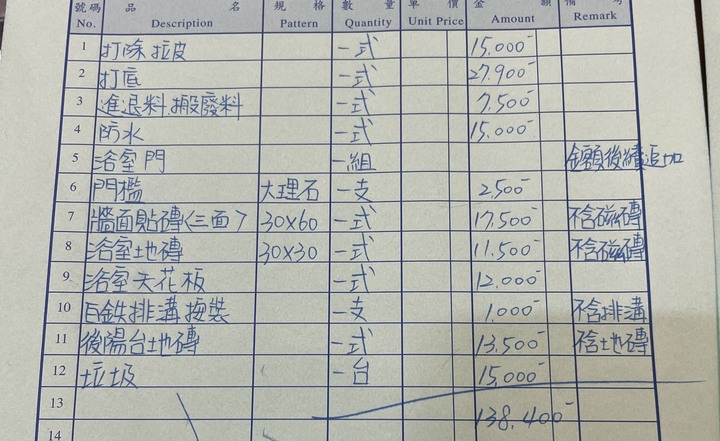 號碼 品 名 規 格 數 量 單 價 金 額 備 考
No. Description Pattern Quantity Unit Price Amount Remark
1 打除拉皮 一式 15.000-
2 打底 一式 27.900-
3 進退料.搬廢料 一式 7.500-
4 防水 一式 15.000-
5 浴室門 一組 金額後續追加
6 門檻 大理石 一支 2.500-
7 牆面貼磚(三面) 30X60 一式 17.500- 不含磁磚
8 浴室地磚 30X30 一式 11.500- 不含磁磚
9 浴室天花板 一式 12.000-
10 白鐵排溝按裝 一支 1.000- 不含排溝
11 後陽台地磚 一式 13.500- 不含地磚
12 垃圾 一台 15.000-
13 138.400-
14